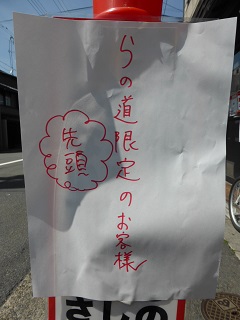 らの道限定のお客様
先頭
さしの